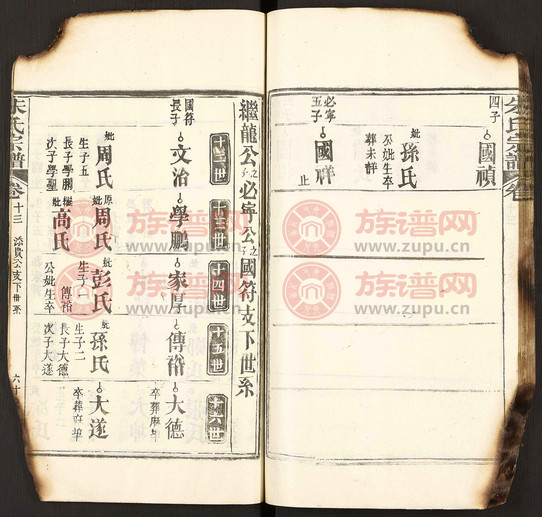 朱氏宗譜
四子
國禎
妣
孫氏
公妣生卒
葬未詳
必寧
五子
國祥
止
繼龍公之子必寧公之子國符支下世系
十二世
十三世
十四世
十五世
十六世
國符
長子
文治
妣
周氏
生子五
長子學鵬
次子學聖
學鵬
原妣
周氏
繼妣
高氏
家厚
妣
彭氏
生子一
傳裕
公妣生卒
傳裕
妣
孫氏
生子二
長子大德
次子大遂
大德
大遂
朱氏宗譜
卷十三
支下世系
六十
族谱网
www.zupu.cn
族谱网
www.zupu.cn
族谱网
www.zupu.cn
族谱网
www.zupu.cn